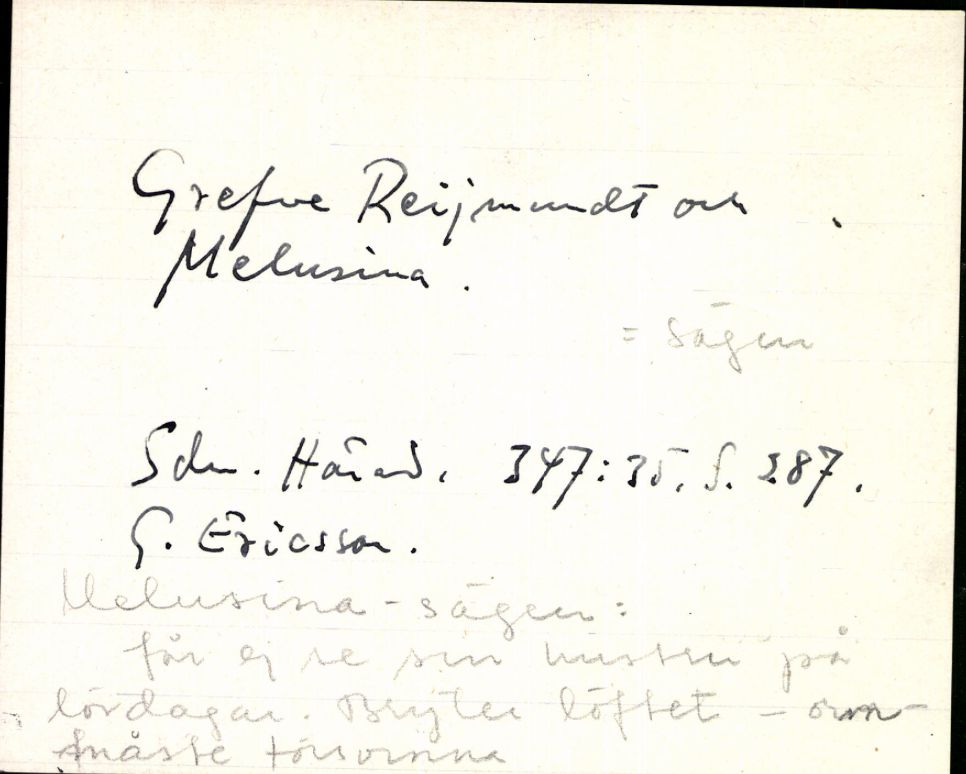 Grefve Reijmundt och
Melusina.
= Sägen
Sdm. Härad. 347:35. S. 287.
G. Ericsson.
Melusina-sägen:
får ej se sin hustru på
lördagar. Bryter löftet – orm–
måste försvinna